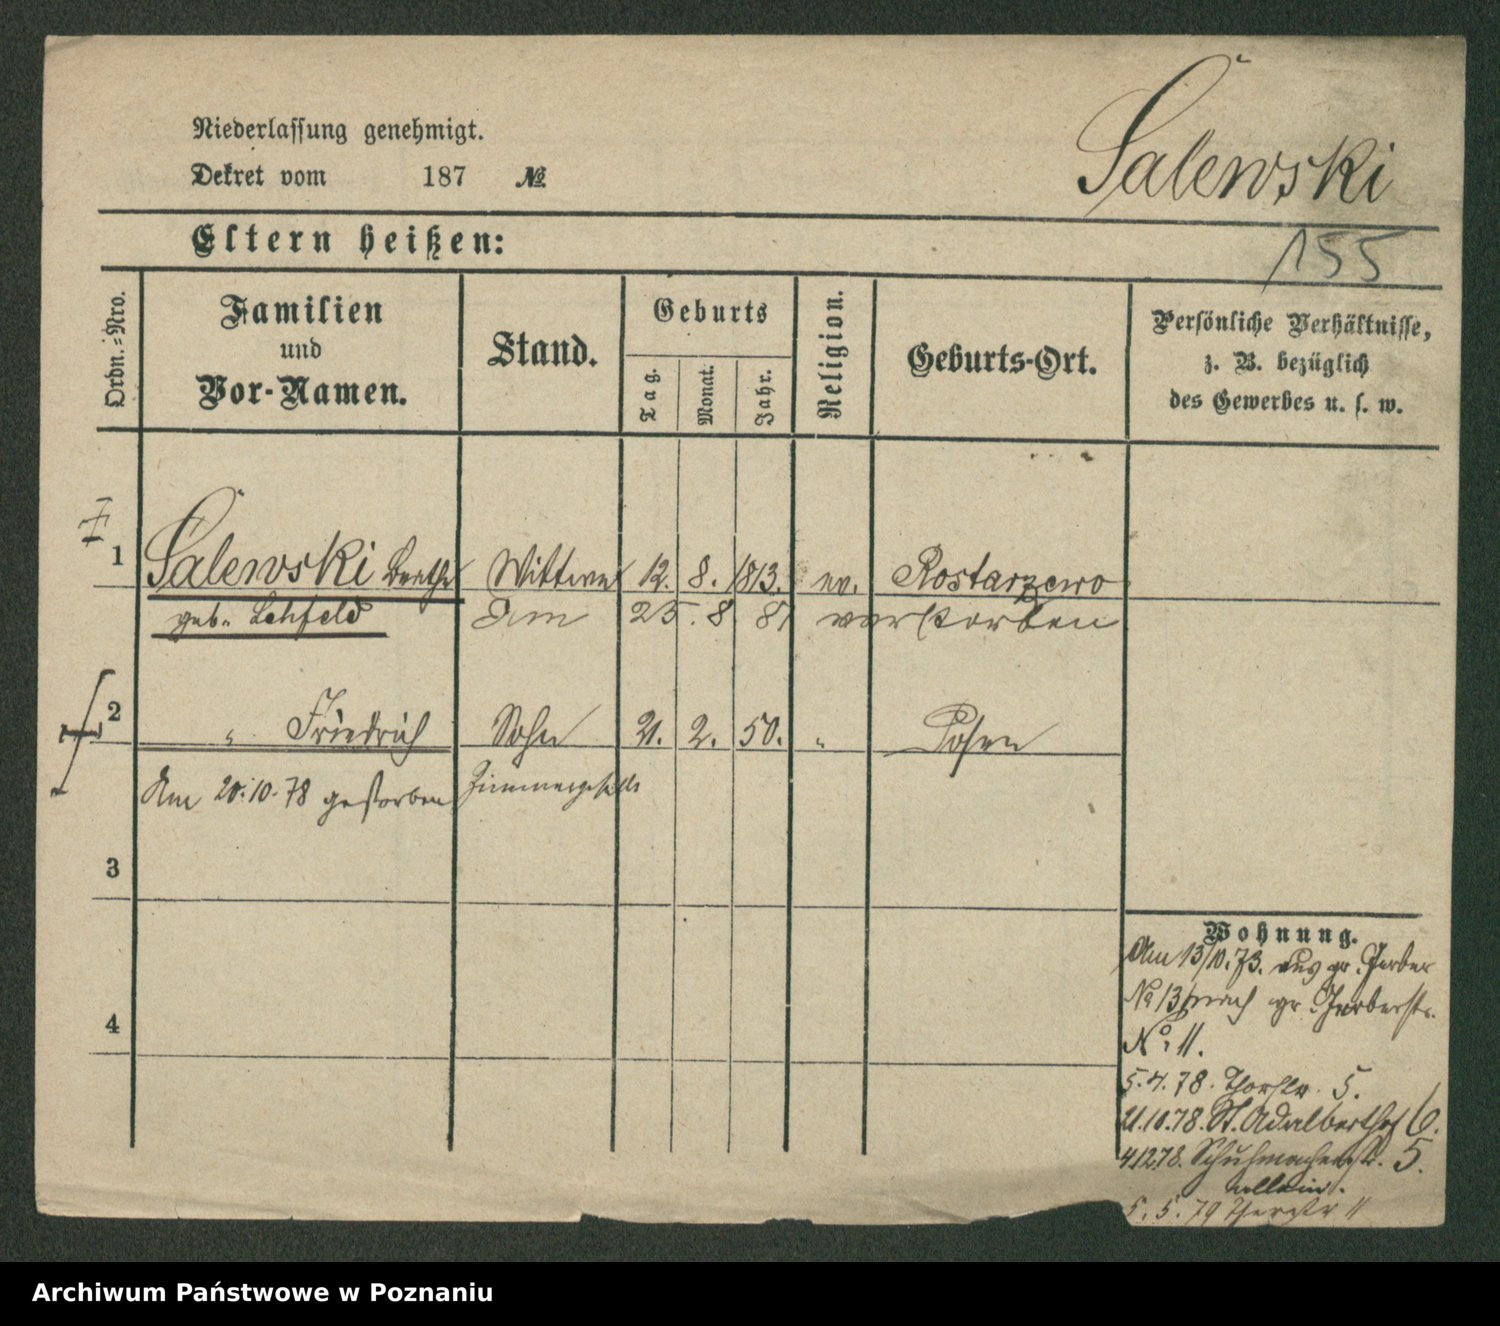 Niederlassung genehmigt.
Dekret vom 187 №
Salewski
Eltern heißen:
155
Ordn.-Nro.
Familien
und
Vor-Namen.
Stand.
Geburts
Tag.
Monat.
Jahr.
Religion.
Geburts-Ort.
Persönliche Verhältnisse,
z. B. bezüglich
des Gewerbes u. s. w.
1 Salewski Berthe Wittwe 12. 8. 1813. ev. Rostarzewo
geb. Lehfeld Am 25. 8 81 verstorben
2 " Friedrich Sohn 21. 2. 50. " Posen
Am 20.10.78 gestorben Zimmergeselle
3
4
Wohnung.
Am 13/10.73. aus gr. Gerber
No 13 nach gr. Gerberstr.
No. 11.
5.4.78. Thorstr. 5.
21.10.78. St. Adalberthof 6.
4.12.78. Schuhmacherstr. 5.
allein.
5. 5. 79 Thorstr 11
Archiwum Państwowe w Poznaniu